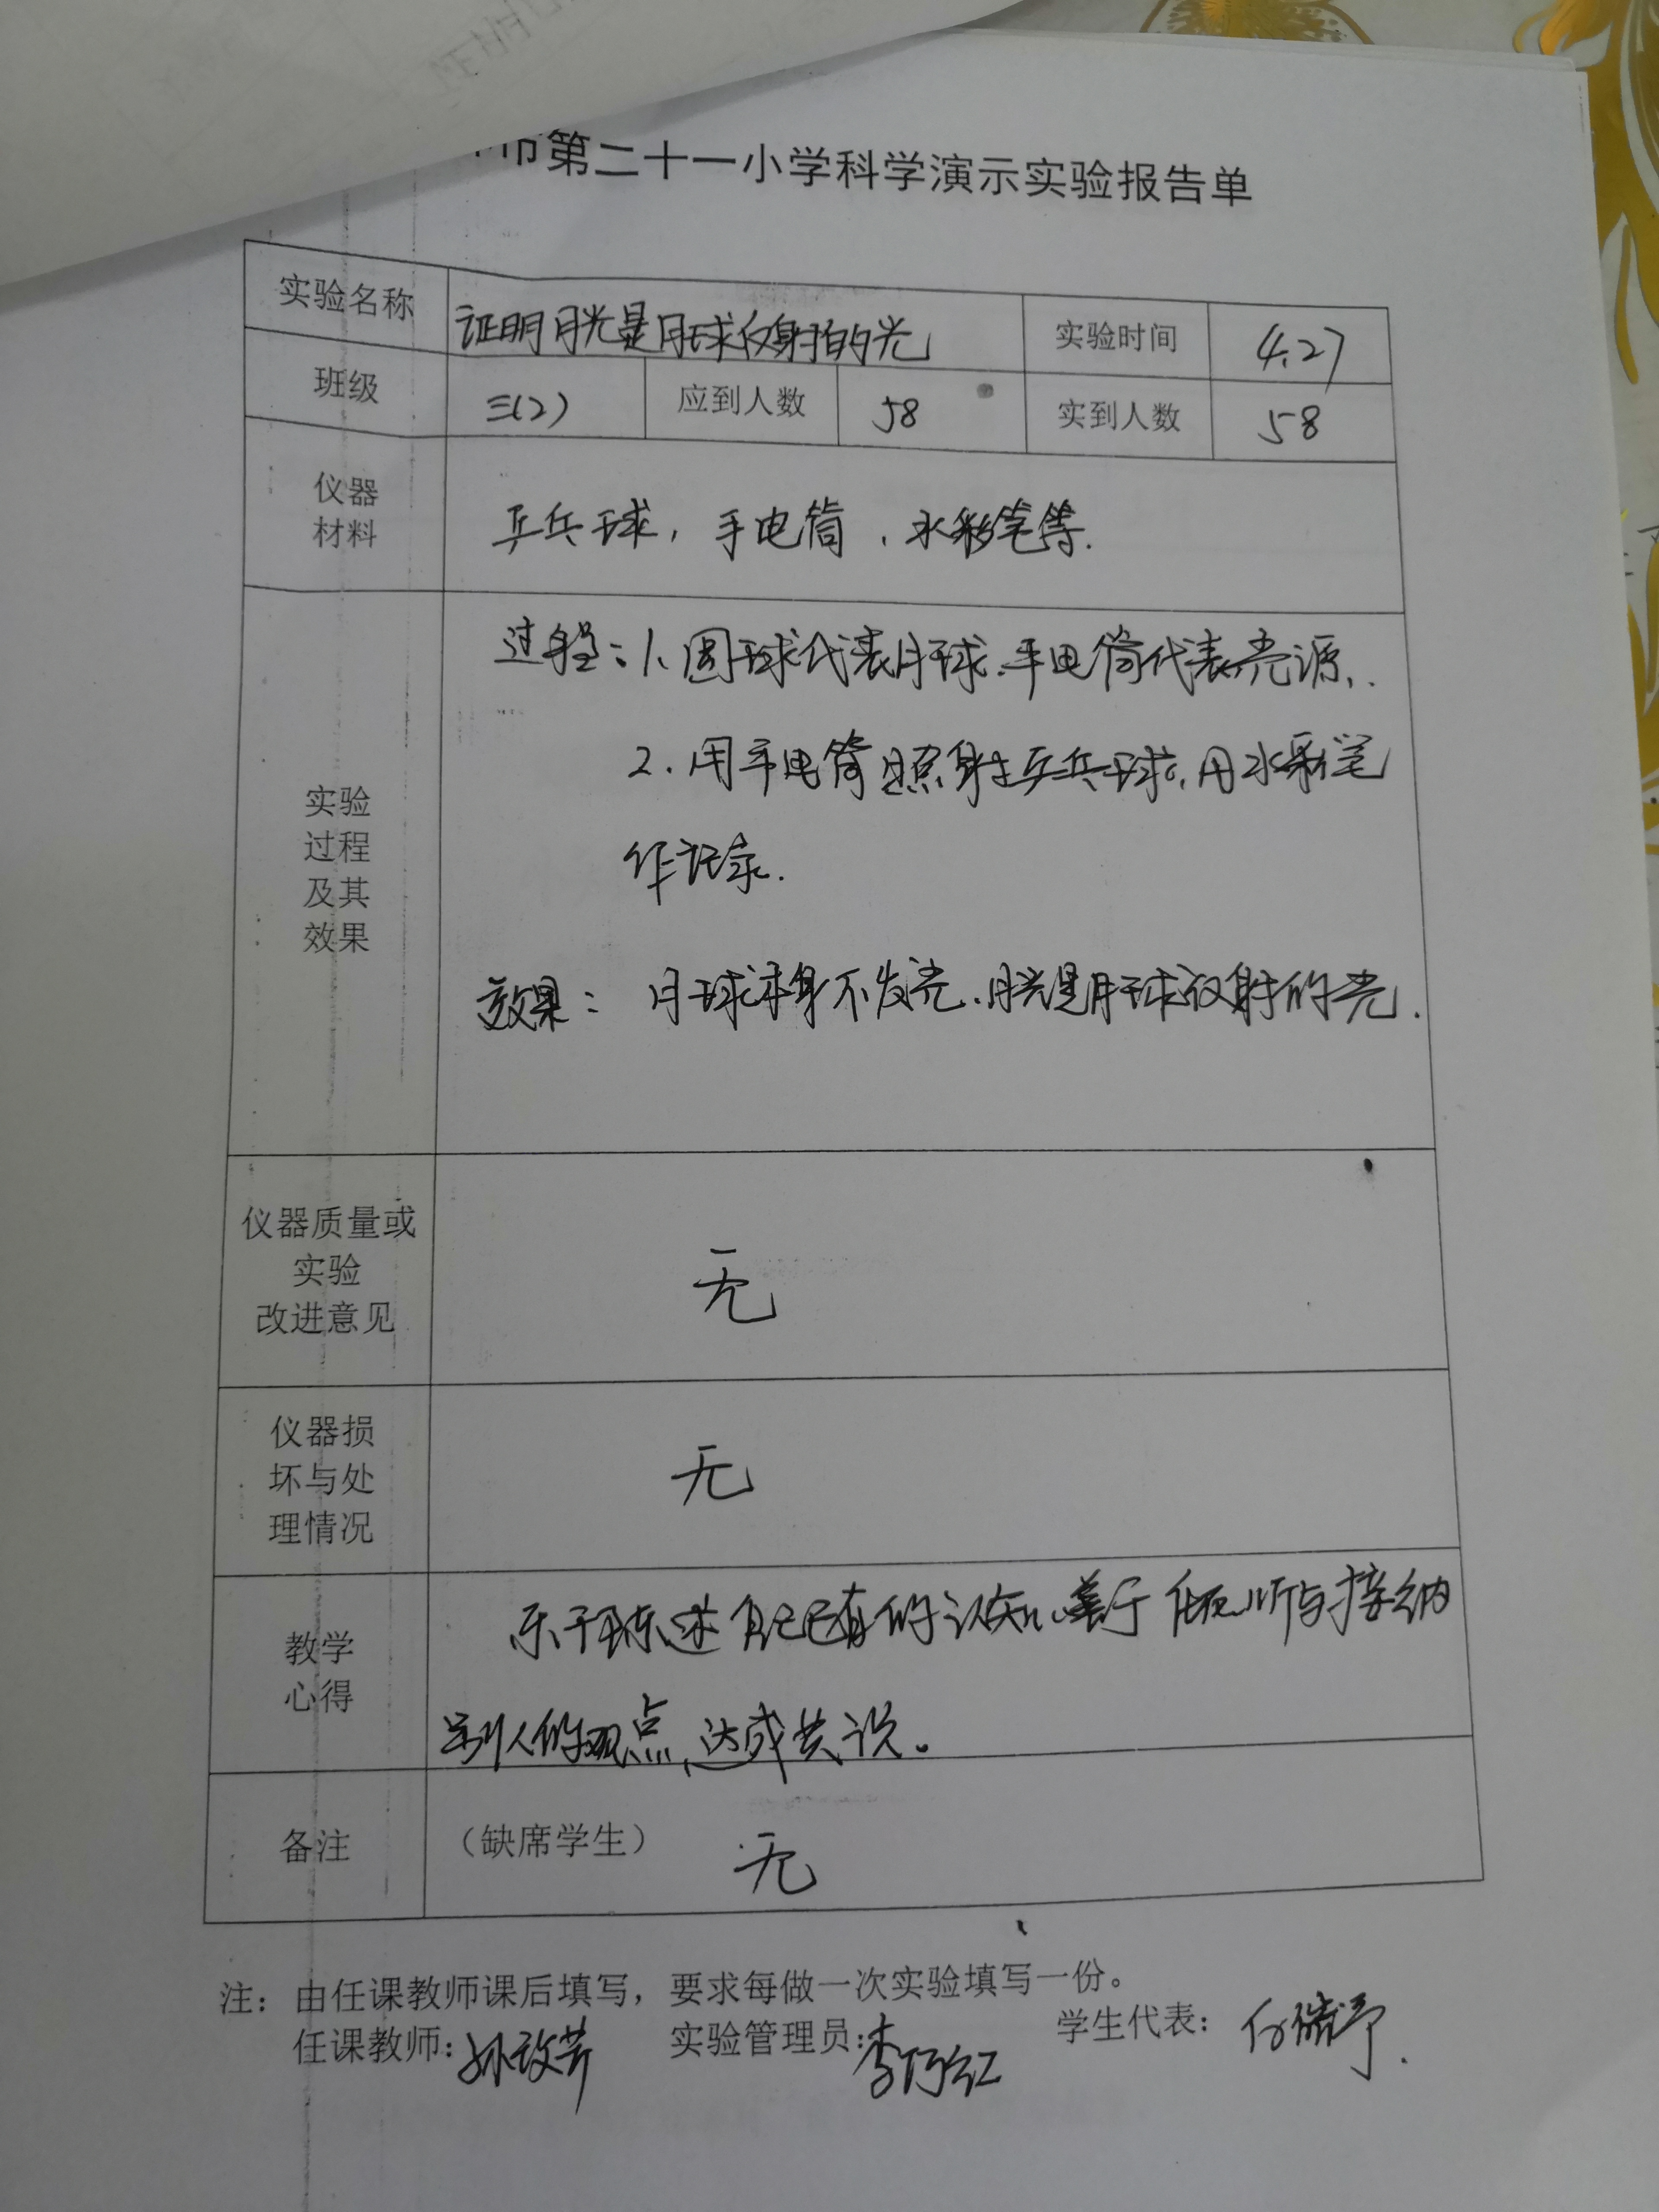 市第二十一小学科学演示实验报告单
实验名称 证明月光是月球反射的光 实验时间 4.27
班级 三(2) 应到人数 58 实到人数 58
仪器
材料
乒乓球,手电筒、水彩笔等.
实验
过程
及其
效果
过程:1、圆球代表月球、手电筒代表光源、.
2.用手电筒照射乒乓球,用水彩笔
作记录.
效果: 月球本身不发光、月光是月球反射的光.
仪器质量或
实验
改进意见
无
仪器损
坏与处
理情况
无
教学
心得
乐于陈述自己已有的认知、善于倾听与接纳
别人的观点、达成共识。
备注 (缺席学生) 无
注:由任课教师课后填写,要求每做一次实验填写一份。
任课教师: 实验管理员: 学生代表: